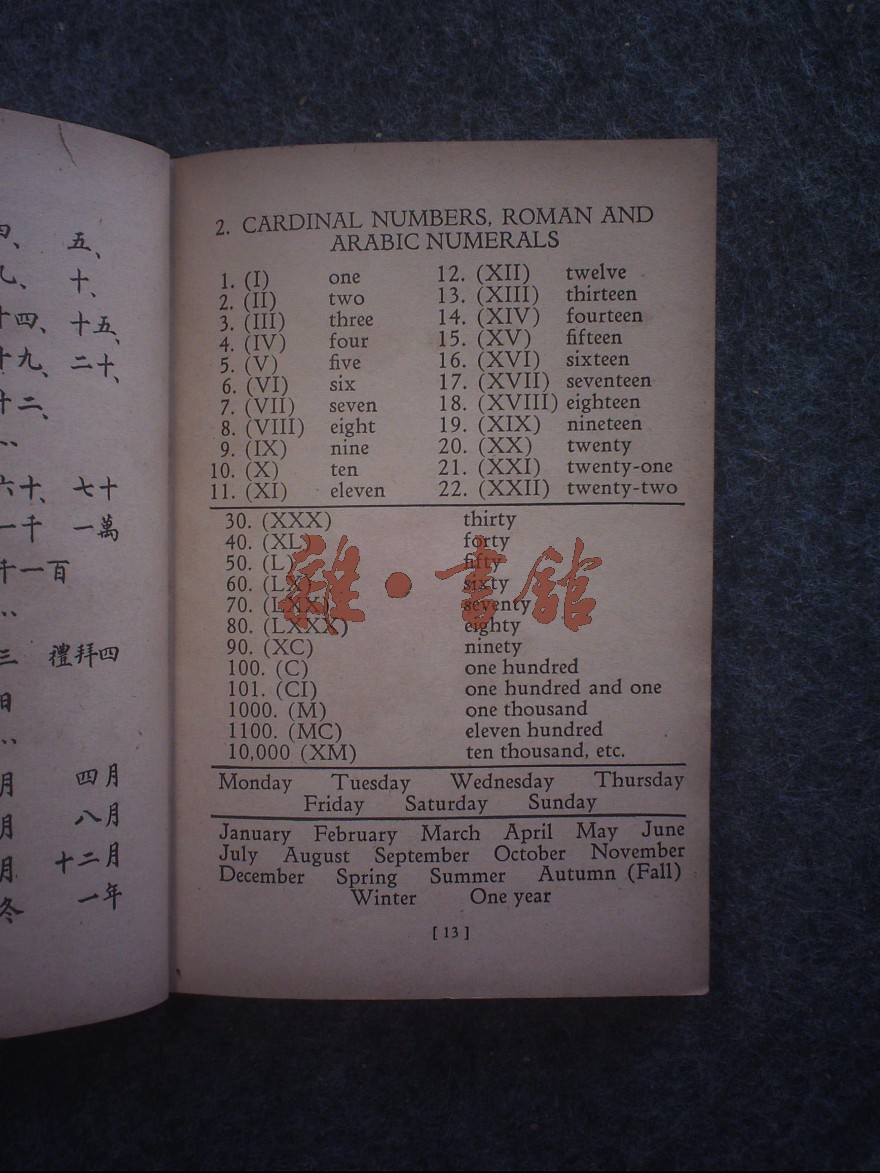 四、 五、
九、 十、
十四、 十五、
十九、 二十、
十二、
六十、 七十
一千 一萬
千一百
三 禮拜四
日
月 四月
月 八月
月 十二月
冬 一年
2. CARDINAL NUMBERS, ROMAN AND
ARABIC NUMERALS
1. (I) one 12. (XII) twelve
2. (II) two 13. (XIII) thirteen
3. (III) three 14. (XIV) fourteen
4. (IV) four 15. (XV) fifteen
5. (V) five 16. (XVI) sixteen
6. (VI) six 17. (XVII) seventeen
7. (VII) seven 18. (XVIII) eighteen
8. (VIII) eight 19. (XIX) nineteen
9. (IX) nine 20. (XX) twenty
10. (X) ten 21. (XXI) twenty-one
11. (XI) eleven 22. (XXII) twenty-two
30. (XXX) thirty
40. (XL) forty
50. (L) fifty
60. (LX) sixty
70. (LXX) seventy
80. (LXXX) eighty
90. (XC) ninety
100. (C) one hundred
101. (CI) one hundred and one
1000. (M) one thousand
1100. (MC) eleven hundred
10,000 (XM) ten thousand, etc.
Monday Tuesday Wednesday Thursday
Friday Saturday Sunday
January February March April May June
July August September October November
December Spring Summer Autumn (Fall)
Winter One year
[ 13 ]
雜·書館